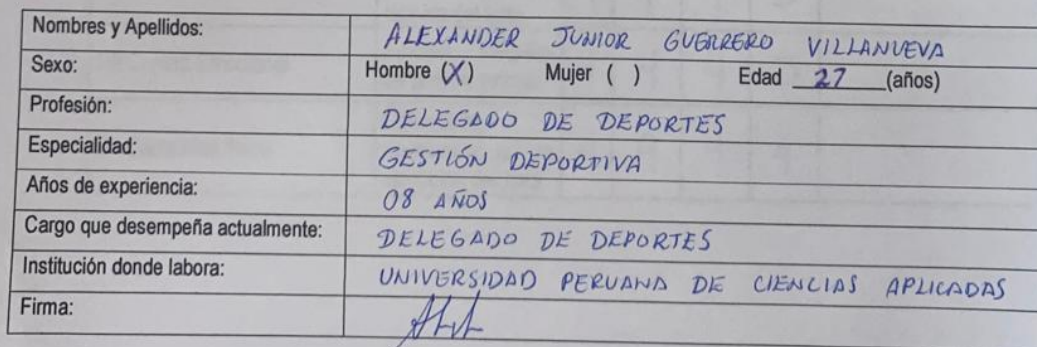 Nombres y Apellidos: ALEXANDER JUNIOR GUERRERO VILLANUEVA
Sexo: Hombre (X) Mujer ( ) Edad 27 (años)
Profesión: DELEGADO DE DEPORTES
Especialidad: GESTIÓN DEPORTIVA
Años de experiencia: 08 AÑOS
Cargo que desempeña actualmente: DELEGADO DE DEPORTES
Institución donde labora: UNIVERSIDAD PERUANA DE CIENCIAS APLICADAS
Firma: